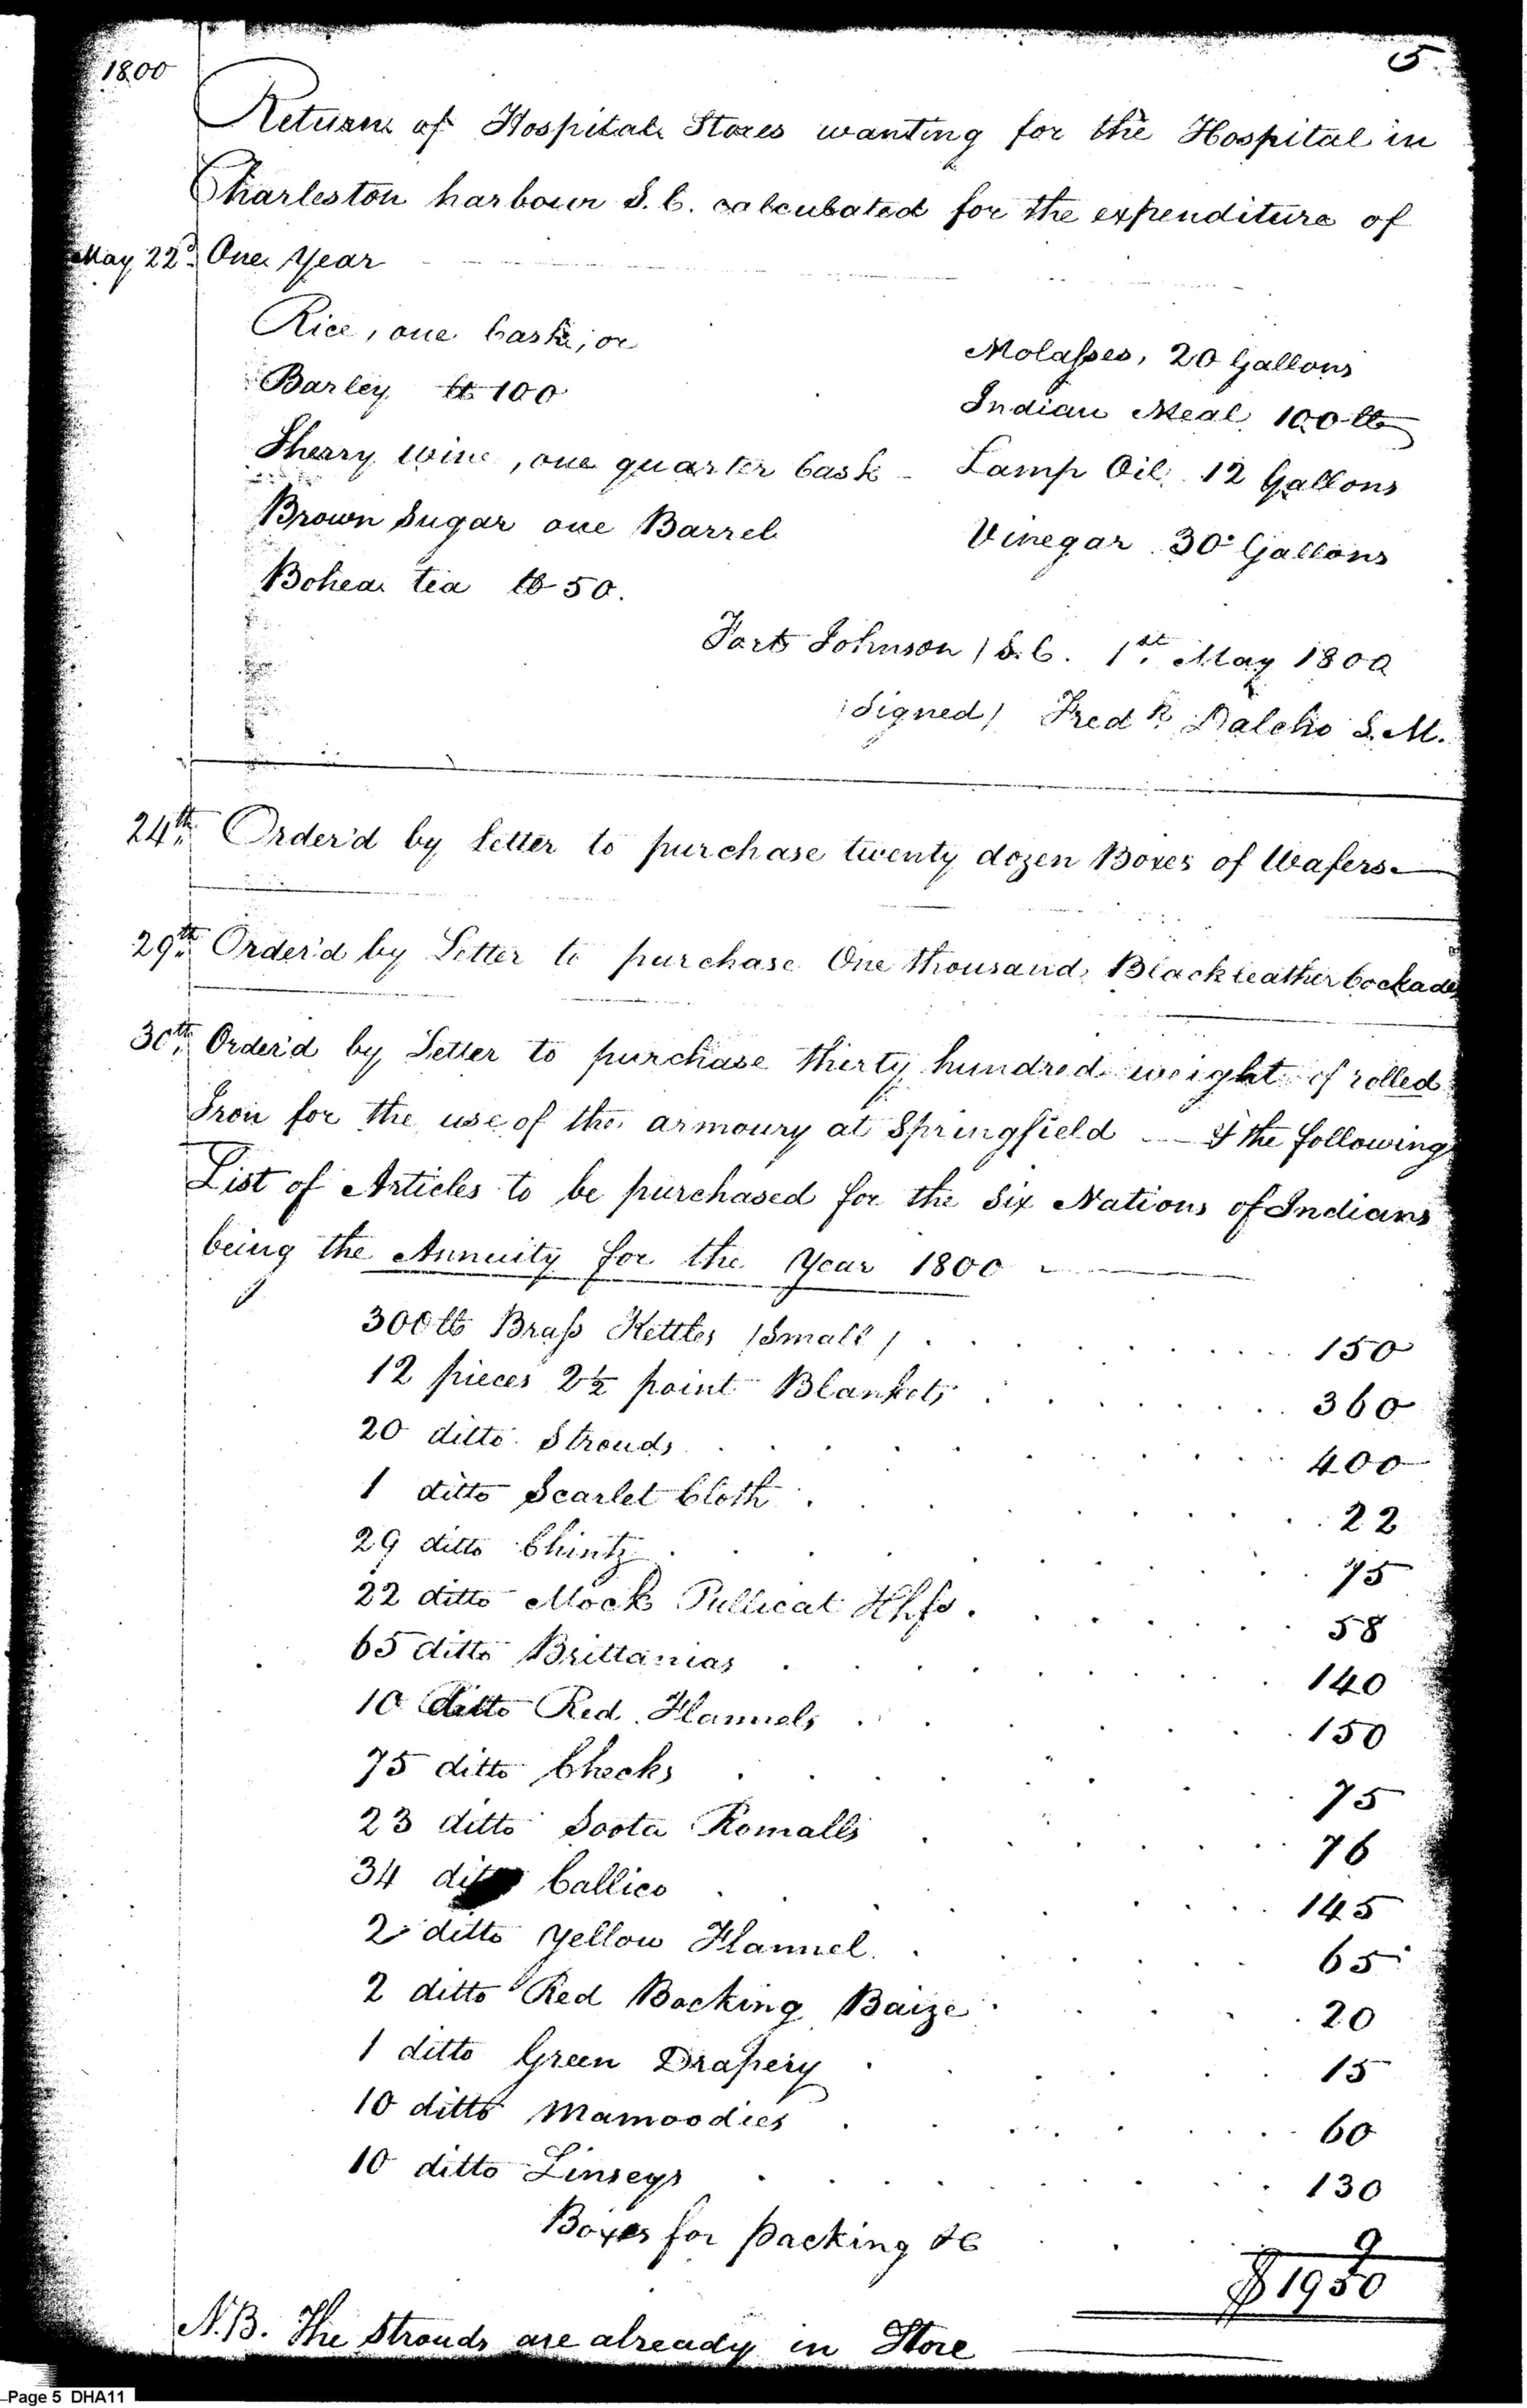 1800
5
Return of Hospital Stores wanting for the Hospital in
Charleston harbour S.C. calculated for the expenditure of
May 22d. One Year
Rice, one Cask, or
Barley lb 100
Sherry wine, one quarter Cask -
Brown Sugar one Barrel
Bohea tea lb 50.
Molasses, 20 Gallons
Indian Meal 100 lb
Lamp Oil, 12 Gallons
Vinegar 30 Gallons
Fort Johnson / S.C. 1st. May 1800
/Signed/ Fredk. Dalcho S.M.
24th. Order'd by Letter to purchase twenty dozen Boxes of Wafers.
29th. Order'd by Letter to purchase One thousand Black leather Cockades
30th. Order'd by Letter to purchase thirty hundred weight of rolled
Iron for the use of the armoury at Springfield — & the following
List of Articles to be purchased for the Six Nations of Indians
being the Annuity for the Year 1800
300 lb Brass Kettles /Small/ 150
12 pieces 2½ point Blankets 360
20 ditto Strouds 400
1 ditto Scarlet Cloth 22
29 ditto Chintz 75
22 ditto Mock Pullicat Hkfs. 58
65 ditto Brittanias 140
10 ditto Red Flannels 150
75 ditto Checks 75
23 ditto Soota Romalls 76
34 ditto Callico 145
2 ditto Yellow Flannel 65
2 ditto Red Bocking Baize 20
1 ditto Green Drapery 15
10 ditto Mamoodies 60
10 ditto Linseys 130
Boxes for packing &c 9
$1950
N.B. The Strouds are already in Store
Page 5 DHA11